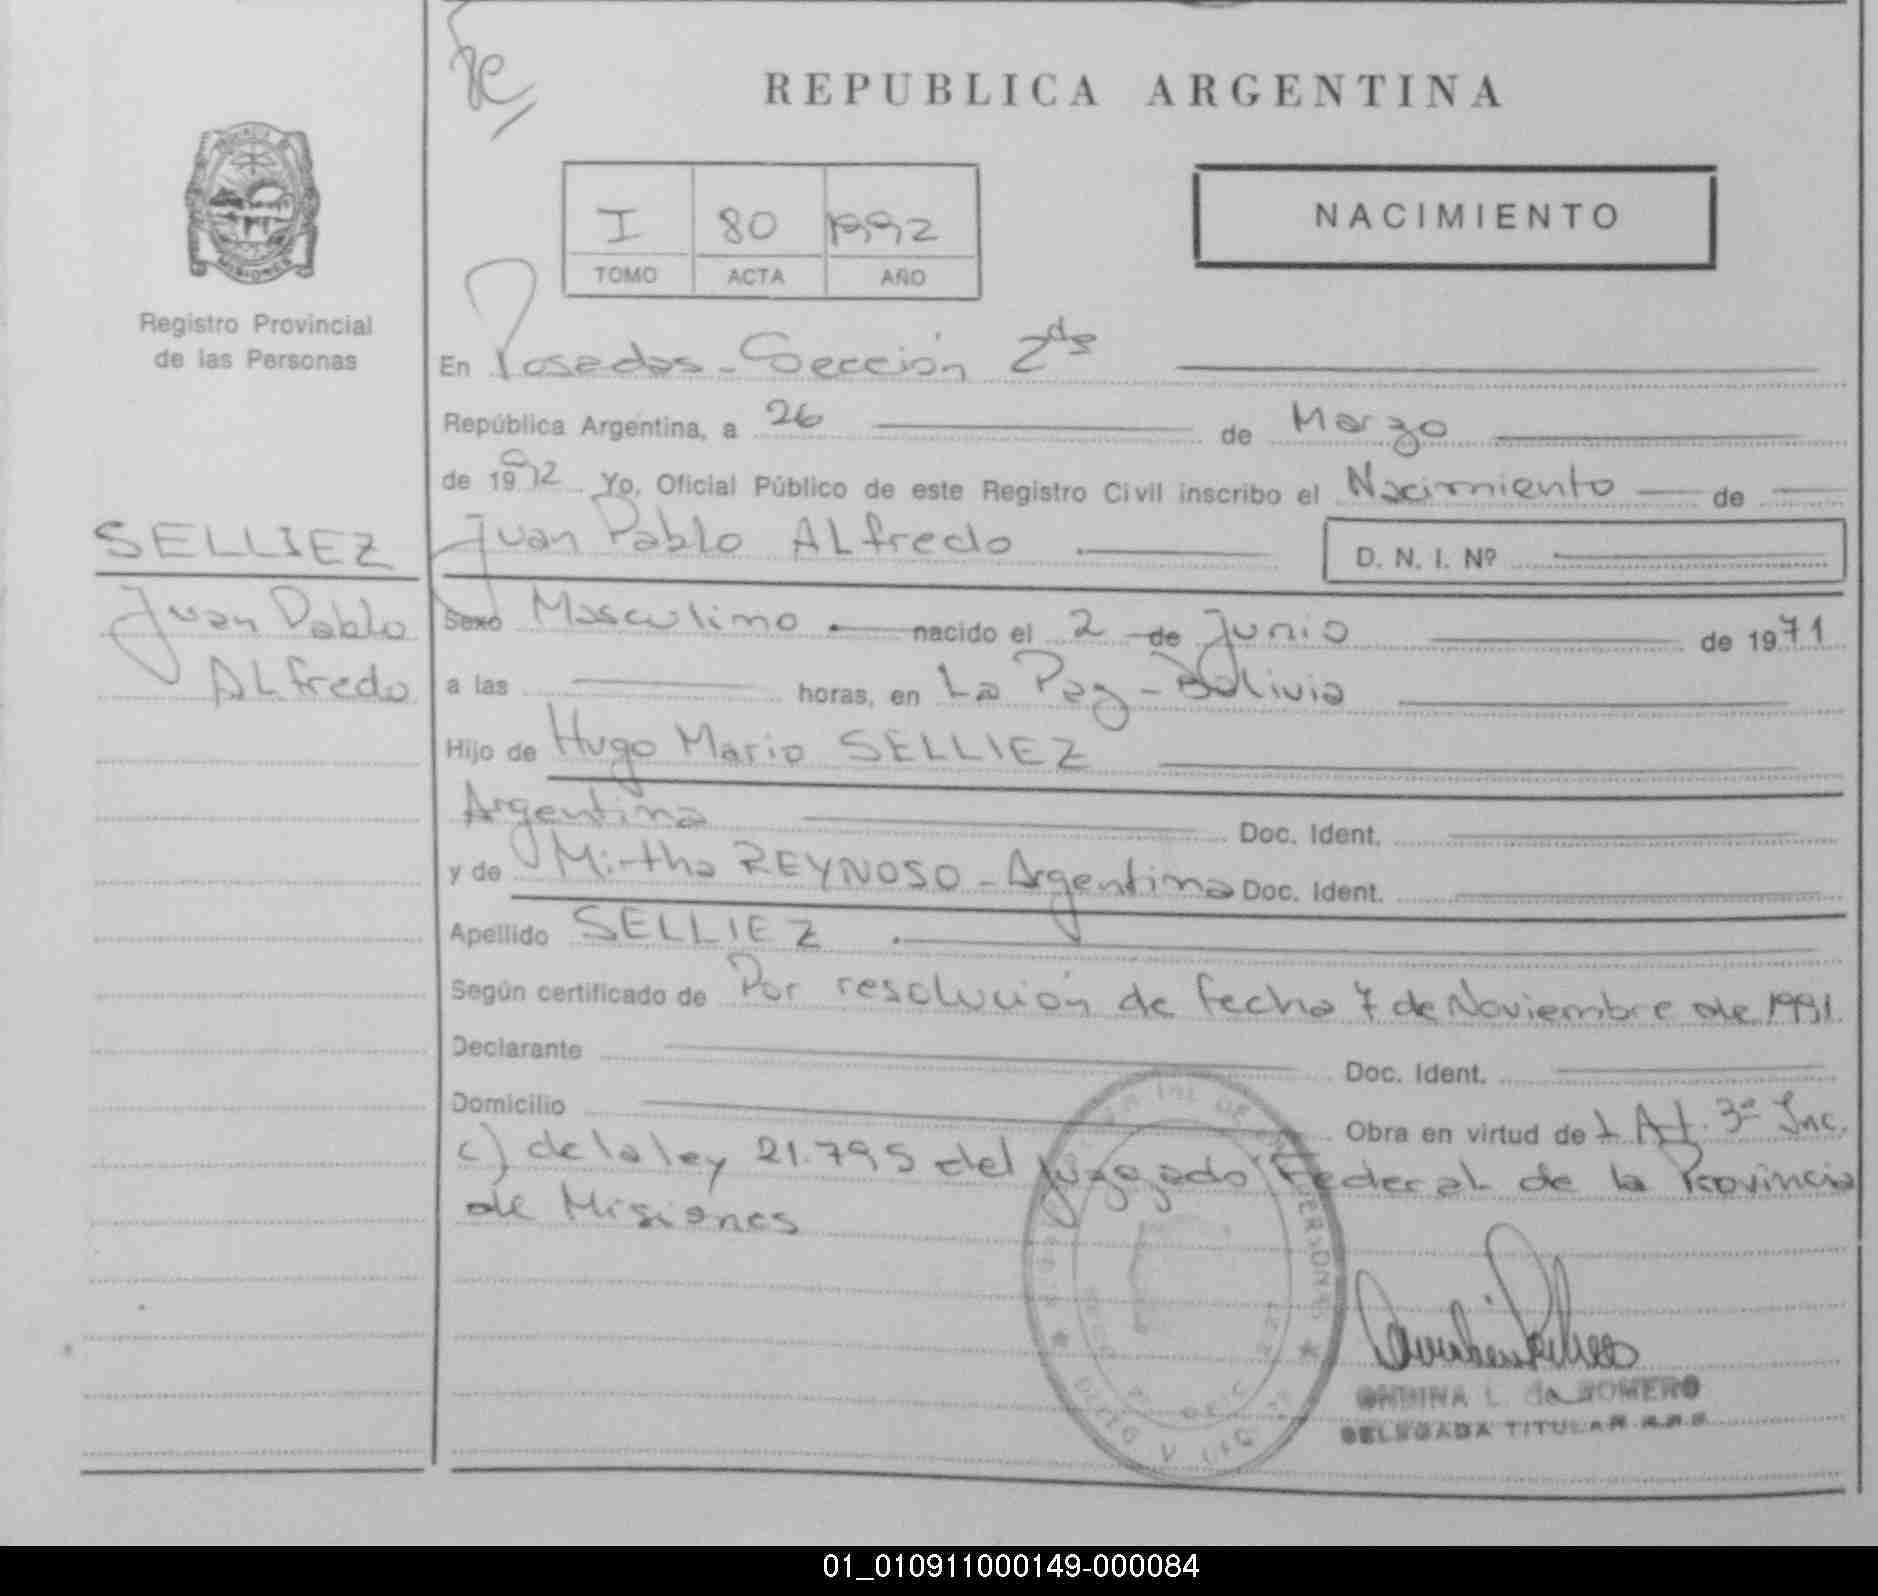 REPUBLICA ARGENTINA
I 80 1992
TOMO ACTA AÑO
NACIMIENTO
MISIONES
Registro Provincial
de las Personas
En Posadas - Sección 2da
República Argentina, a 26 de Marzo
de 1992 Yo, Oficial Público de este Registro Civil inscribo el Nacimiento de
Juan Pablo ALfredo D. N. I. Nº
SELLIEZ
Juan Pablo
ALfredo
Sexo Masculino nacido el 2 de Junio de 1971
a las horas, en La Paz - Bolivia
Hijo de Hugo Mario SELLIEZ
Argentina Doc. Ident.
y de Mirtha REYNOSO - Argentina Doc. Ident.
Apellido SELLIEZ
Según certificado de Por resolución de fecha 7 de Noviembre de 1991.
Declarante Doc. Ident.
Domicilio Obra en virtud de L Art. 3º Inc.
c) de la ley 21.795 del Juzgado Federal de la Provincia
de Misiones
ONDINA L. de ROMERO
DELEGADA TITULAR
01_010911000149-000084